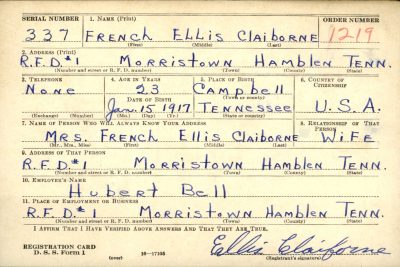 SERIAL NUMBER 1. NAME (Print) ORDER NUMBER
337 FRENCH ELLIS CLAIBORNE 1219
(First) (Middle) (Last)
2. ADDRESS (Print)
R.F.D#1 MORRISTOWN HAMBLEN TENN.
(Number and street or R. F. D. number) (Town) (County) (State)
3. TELEPHONE 4. AGE IN YEARS 5. PLACE OF BIRTH 6. COUNTRY OF CITIZENSHIP
NONE 23 CAMPBELL
DATE OF BIRTH (Town or county)
JAN. 15 1917 TENNESSEE U.S.A.
(Exchange) (Number) (Mo.) (Day) (Yr.) (State or country)
7. NAME OF PERSON WHO WILL ALWAYS KNOW YOUR ADDRESS 8. RELATIONSHIP OF THAT PERSON
MRS. FRENCH ELLIS CLAIBORNE WIFE
(Mr., Mrs., Miss) (First) (Middle) (Last)
9. ADDRESS OF THAT PERSON
R.F.D.#1 MORRISTOWN HAMBLEN TENN.
(Number and street or R. F. D. number) (Town) (County) (State)
10. EMPLOYER'S NAME
Hubert Bell
11. PLACE OF EMPLOYMENT OR BUSINESS
R.F.D#1 MORRISTOWN HAMBLEN TENN.
(Number and street or R. F. D. number) (Town) (County) (State)
I AFFIRM THAT I HAVE VERIFIED ABOVE ANSWERS AND THAT THEY ARE TRUE.
REGISTRATION CARD
D. S. S. Form 1 (over) 16—17105 Ellis Claiborne
(Registrant's signature)